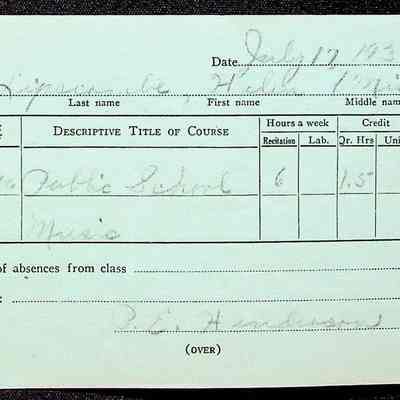 Date July 17, 193
Lipscombe, Helen
Last name First name Middle nam
DESCRIPTIVE TITLE OF COURSE Hours a week Credit
Recitation Lab. Qr. Hrs Uni
Public School 6 1.5
Music
of absences from class
:
P. E. Henderson
(OVER)